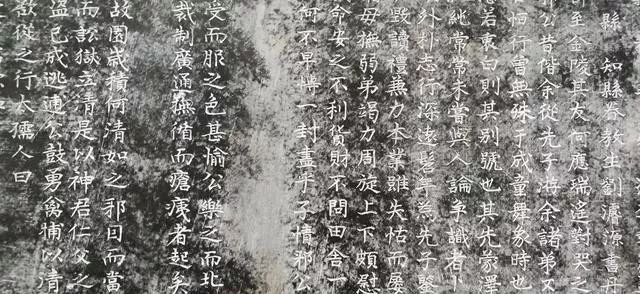 縣　知縣眷教生劉應源書丹
至金陵其友何應瑞遙對哭之
公昔偕余從先子海余諸弟又
恒行會典殊于成童舞象時也
若衷白則其別號也其先蒙澤
純常常未嘗與人論爭識者卜
外朴志行深遠髫年為先子鑒
毀讀禮兼力本業雖失怙而屢
母撫弱弟竭力周旋上下頗慰
命安之不利貨財不問田舍一
何不早博一封盡乎子情邪公
受而服之色甚愉公樂之而北
裁制廣通無循而瘡痍者起矣
故園歲積何清如之邪日而當
而訟獄立清是以神君仁父之
盜已成逃逋公鼓勇禽捕以清
欷從之行太儒人曰